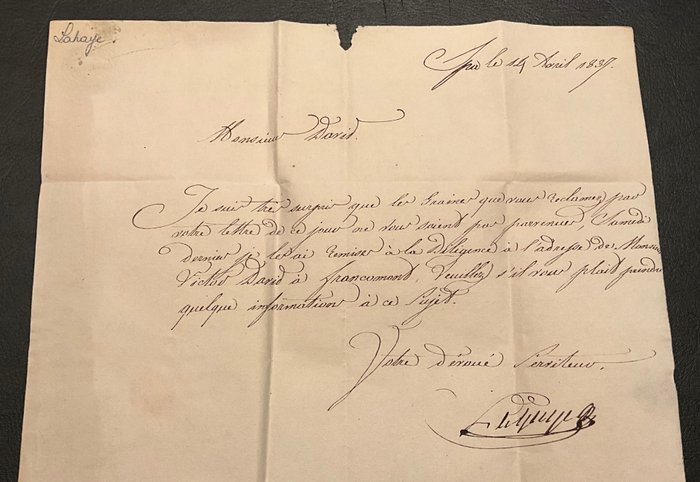 Lahaye.
Spa le 14 Avril 1837.
Monsieur David.
Je suis très surpris que les Graines que vous reclamez par
votre lettre de ce jour ne vous soient pas parvenues, Samedi
dernier je les ai remises à la Diligence à l'adresse de Monsieur
Victor David à francomont, Veuillez s'il vous plait prendre
quelque information à ce Sujet.
Votre dévoué Serviteur.